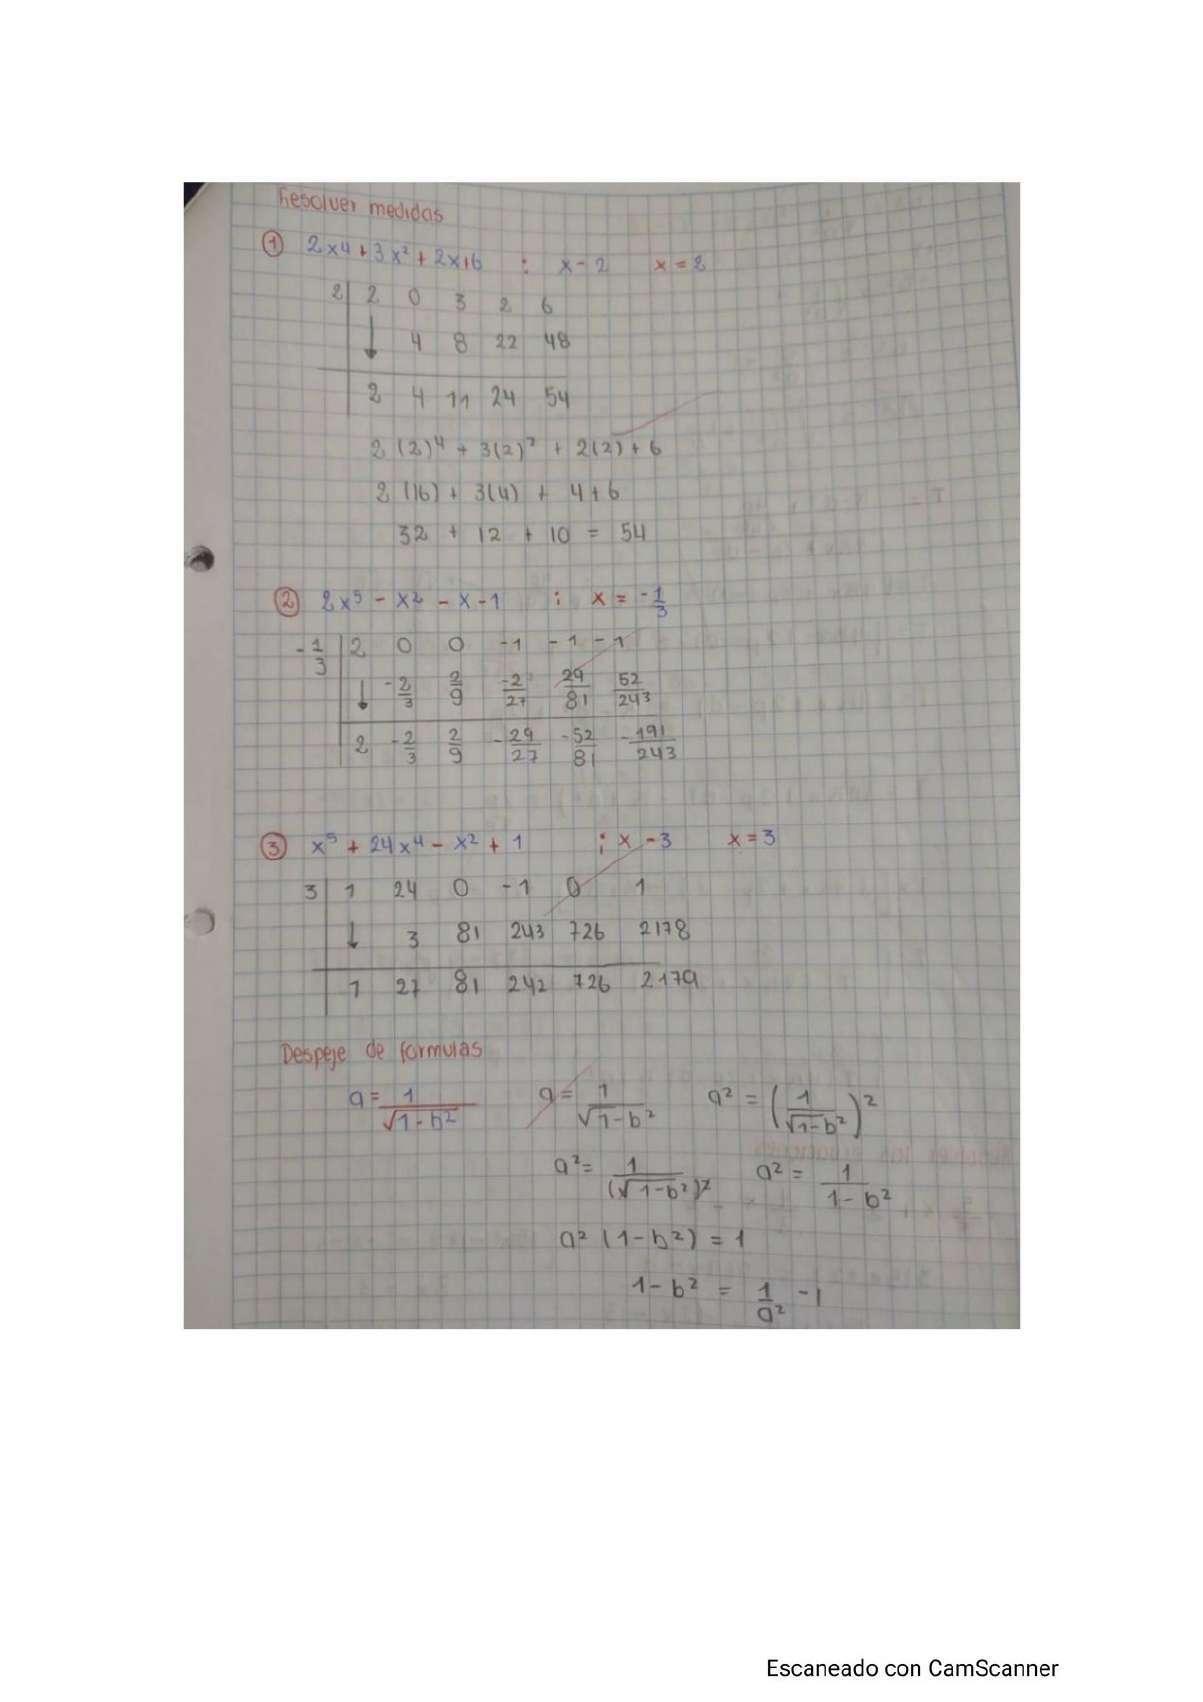 Resolver medidas
① 2x4 + 3x² + 2x+6 : x-2 x=2
2 2 0 3 2 6
↓ 4 8 22 48
2 4 11 24 54
2(2)⁴ + 3(2)² + 2(2) + 6
2(16) + 3(4) + 4+6
32 + 12 + 10 = 54
② 2x⁵ - x² - x - 1 ; x = -1/3
-1/3 2 0 0 -1 -1 -1
↓ -2/3 2/9 -2/27 29/81 52/243
2 -2/3 2/9 -29/27 -52/81 -191/243
③ x⁵ + 24x⁴ - x² + 1 ; x-3 x=3
3 1 24 0 -1 0 1
↓ 3 81 243 726 2178
1 27 81 242 726 2179
Despeje de formulas
a = 1/√1-b² a = 1/√1-b² a² = (1/√1-b²)²
a² = 1/(√1-b²)² a² = 1/1-b²
a² (1-b²) = 1
1-b² = 1/a² -1
Escaneado con CamScanner